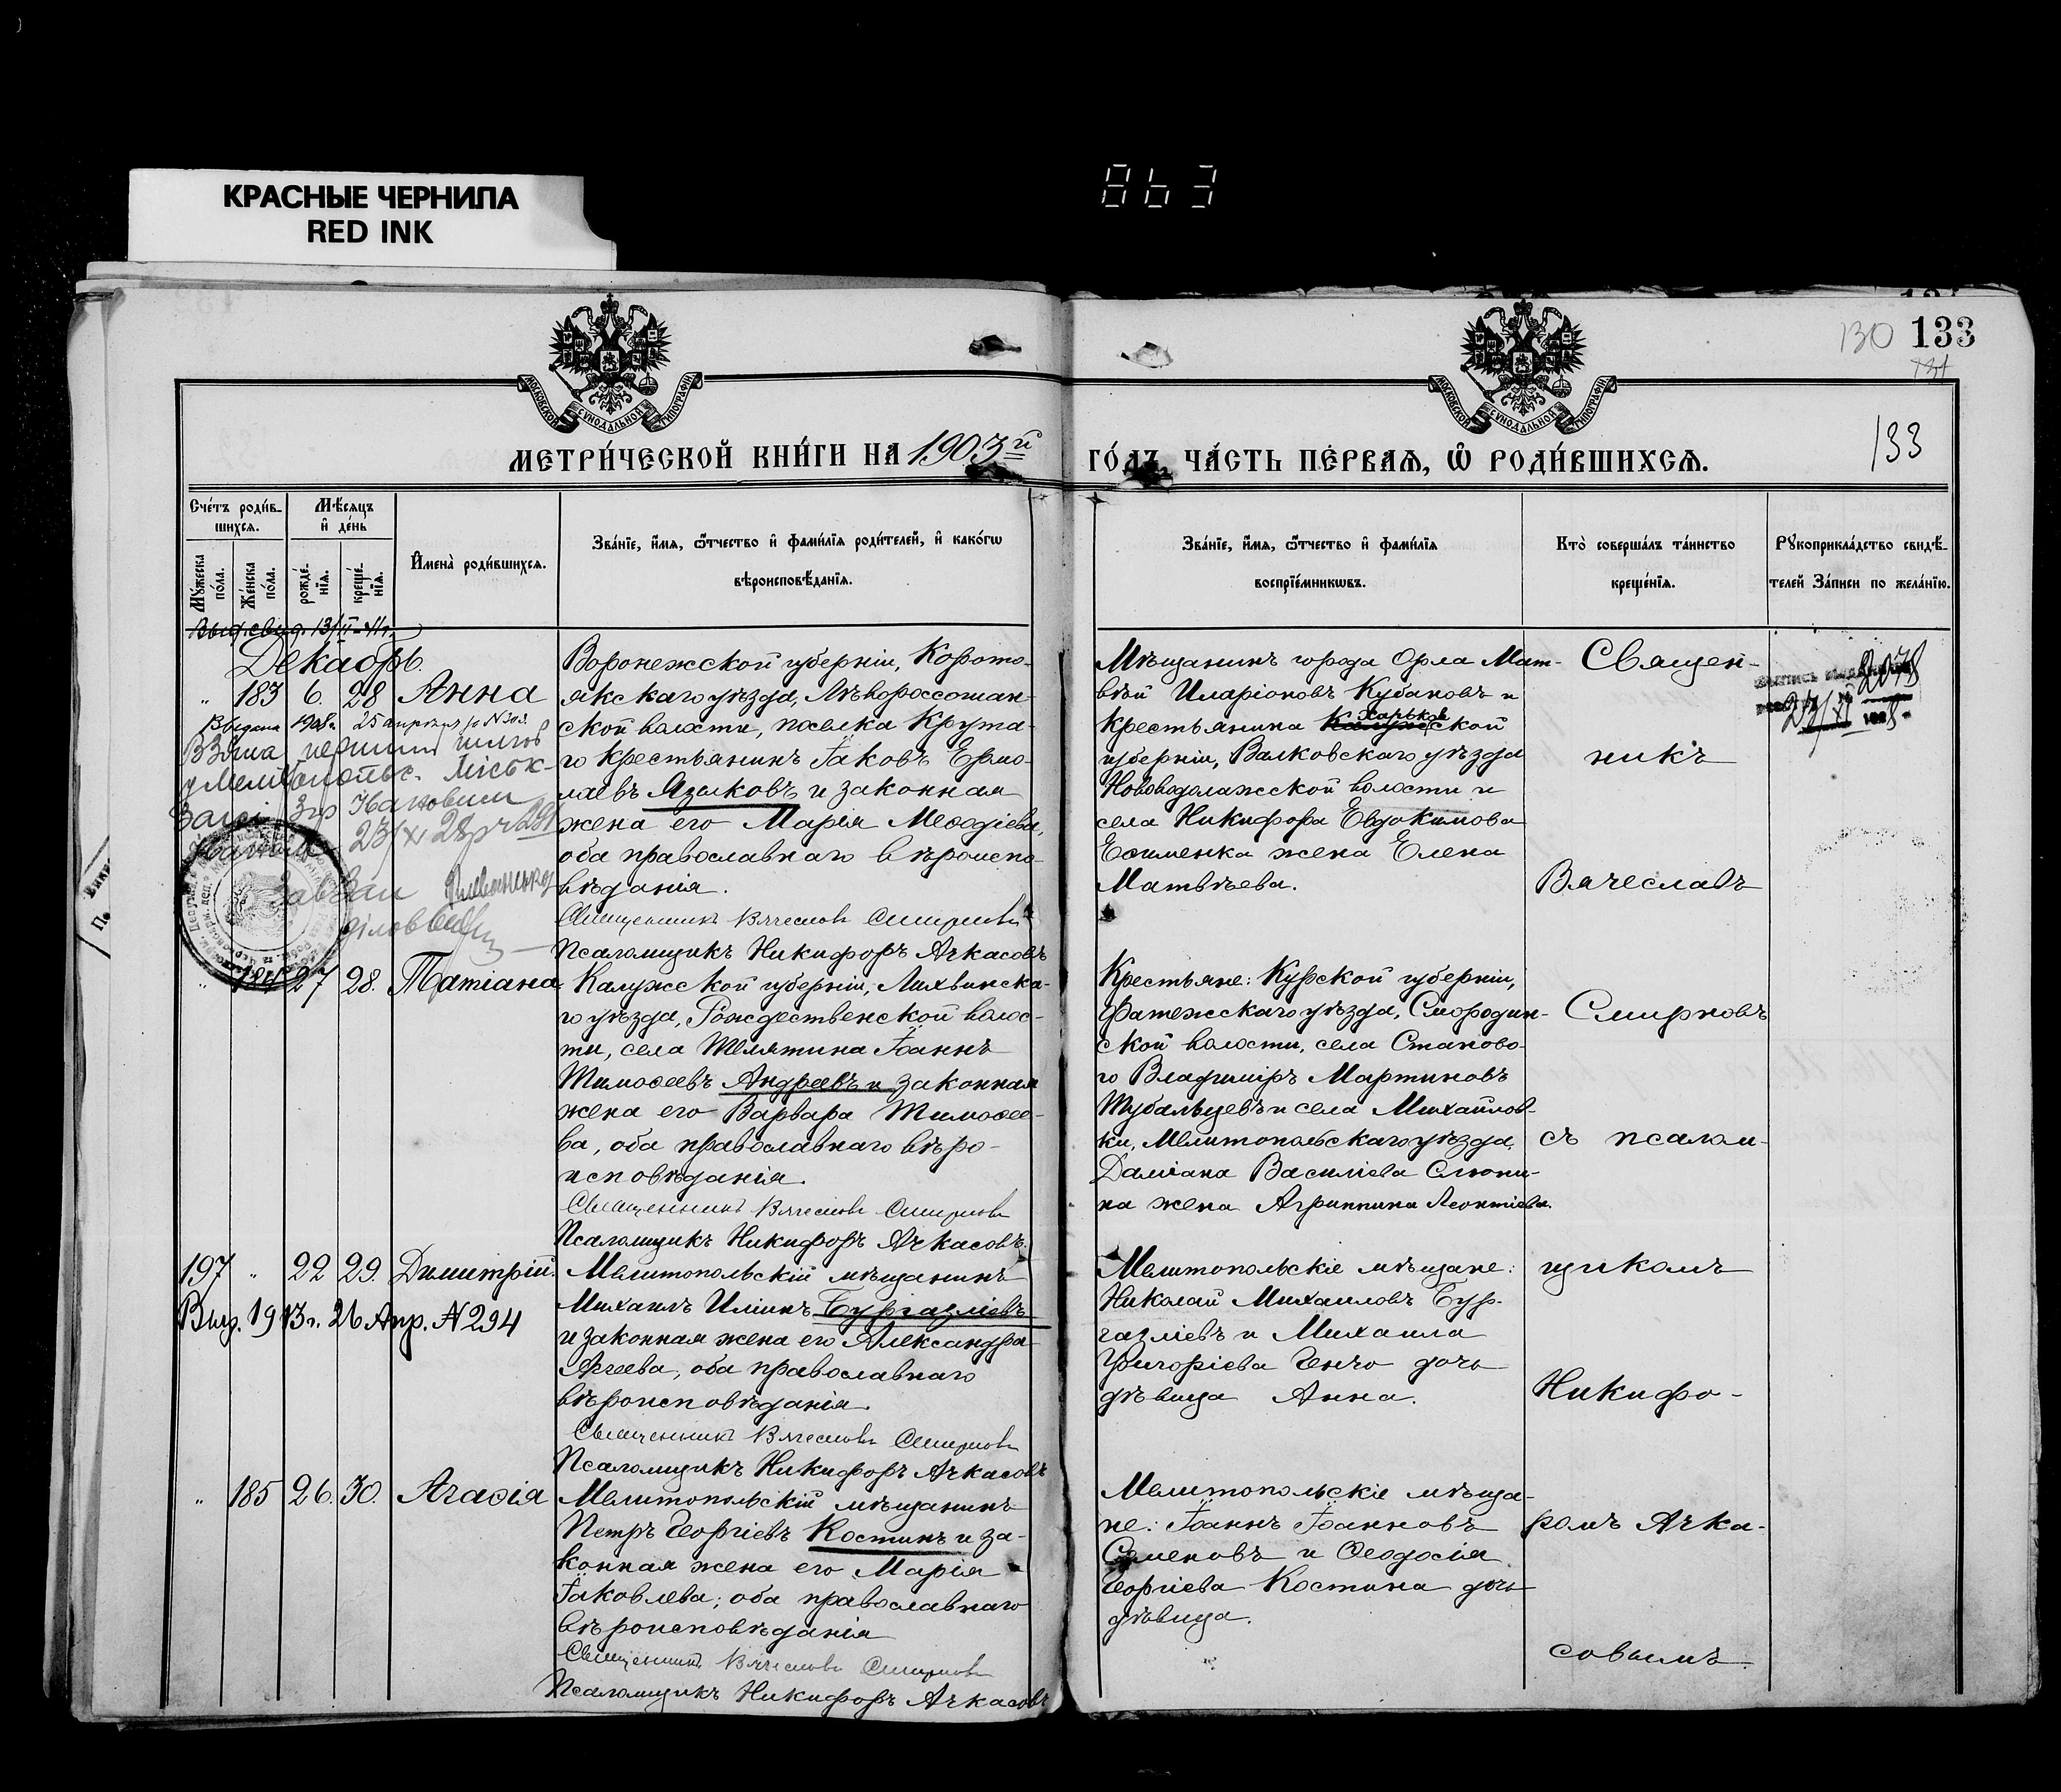 КРАСНЫЕ ЧЕРНИЛА
RED INK
863
130 133
133
МОСКОВСКОЙ СѴНОДАЛЬНОЙ ТИПОГРАФІИ
МОСКОВСКОЙ СѴНОДАЛЬНОЙ ТИПОГРАФІИ
МЕТРИ́ЧЕСКОЙ КНИ́ГИ НА 1903й ГО́ДЪ, ЧА́СТЬ ПЕ́РВАЯ, Ѽ РОДИ́ВШИХСЯ.
Сче́тъ роди́в-
шихся.
Мѣ́сяцъ
и҆ де́нь
Мꙋ́жеска по́ла.
Же́нска по́ла.
рожде́-
нїя.
креще́-
нїя.
И҆мена̀ роди́вшихся.
Зва́нїе, и҆́мя, ѻ҆́тчество и҆ фами́лїя роди́телей, и҆ како́гѡ
вѣроисповѣ́данїя.
Зва́нїе, и҆́мя, ѻ҆́тчество и҆ фами́лїя
воспрїе́мникѡвъ.
Кто̀ соверша́лъ та́инство
креще́нїя.
Рꙋкоприкла́дство свидѣ́-
телей за́писи по жела́нїю.
Выд. свид. 13/II-
Декабрь.
" 183 6. 28 Анна
Воронежской губерніи, Корото-
якскаго уѣзда, Лѣвороссошан-
ской волости, поселка Крута-
го крестьянинъ Іаковъ Ермо-
лаевъ Языковъ и законная
жена его Марія Меѳодіева,
оба православнаго вѣроиспо-
вѣданія.
Священникъ Вячеславъ Смирновъ
Псаломщикъ Никифоръ Ачкасовъ
Выдана 1908г. 25 апрѣля № 303.
23/XI 28р
Мѣщанинъ города Орла Мат-
вѣй Иларіоновъ Кубановъ и
крестьянина Харьковской
губерніи, Валковскаго уѣзда
Нововодолажской волости и
села Никифора Евдокимова
Ефименка жена Елена
Матвѣева.
Священ-
никъ
Вячеславъ
2078
23/XI 1928
" 184 27 28. Татіана
Калужской губерніи, Лихвинска-
го уѣзда, Рождественской волос-
ти, села Телятина Іоаннъ
Тимоѳеевъ Андреевъ и законная
жена его Варвара Тимоѳее-
ва, оба православнаго вѣро-
исповѣданія.
Священникъ Вячеславъ Смирновъ
Псаломщикъ Никифоръ Ачкасовъ.
Крестьяне: Курской губерніи,
Фатежскаго уѣзда, Смородин-
ской волости, села Станово-
го Владиміръ Мартиновъ
Тубальцевъ и села Михайлов-
ки, Мелитопольскаго уѣзда,
Даміана Василіева Слюни-
на жена Агриппина Леонтіева.
Смирновъ
съ псалом-
197 " 22 29. Димитрій.
Выд. 1913г. 26 Апр. № 294
Мелитопольскій мѣщанинъ
Михаилъ Иліинъ Бургазліевъ
и законная жена его Александра
Аггеева, оба православнаго
вѣроисповѣданія.
Священникъ Вячеславъ Смирновъ
Псаломщикъ Никифоръ Ачкасовъ
Мелитопольскіе мѣщане:
Николай Михаиловъ Бур-
газліевъ и Михаила
Григоріева Генчо дочь
дѣвица Анна.
щикомъ
Никифо-
" 185 26. 30. Агаѳія
Мелитопольскій мѣщанинъ
Петръ Георгіевъ Костинъ и за-
конная жена его Марія
Іаковлева; оба православнаго
вѣроисповѣданія
Священникъ Вячеславъ Смирновъ
Псаломщикъ Никифоръ Ачкасовъ
Мелитопольскіе мѣща-
не: Іоаннъ Іоанновъ
Семеновъ и Ѳеодосія
Георгіева Костина дочь
дѣвица.
ромъ Ачка-
совымъ.